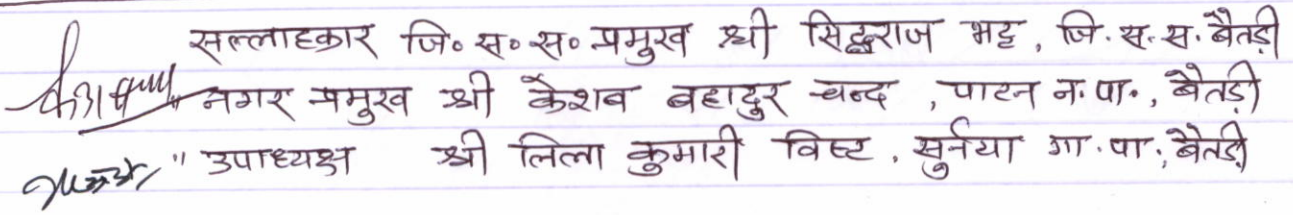 सल्लाहकार जि॰ स॰ स॰ प्रमुख श्री सिद्धराज भट्ट, जि. स. स. बैतडी
" नगर प्रमुख श्री केशव बहादुर चन्द, पाटन न. पा., बैतडी
" उपाध्यक्ष श्री लिला कुमारी विष्ट, सुर्नया गा. पा., बैतडी